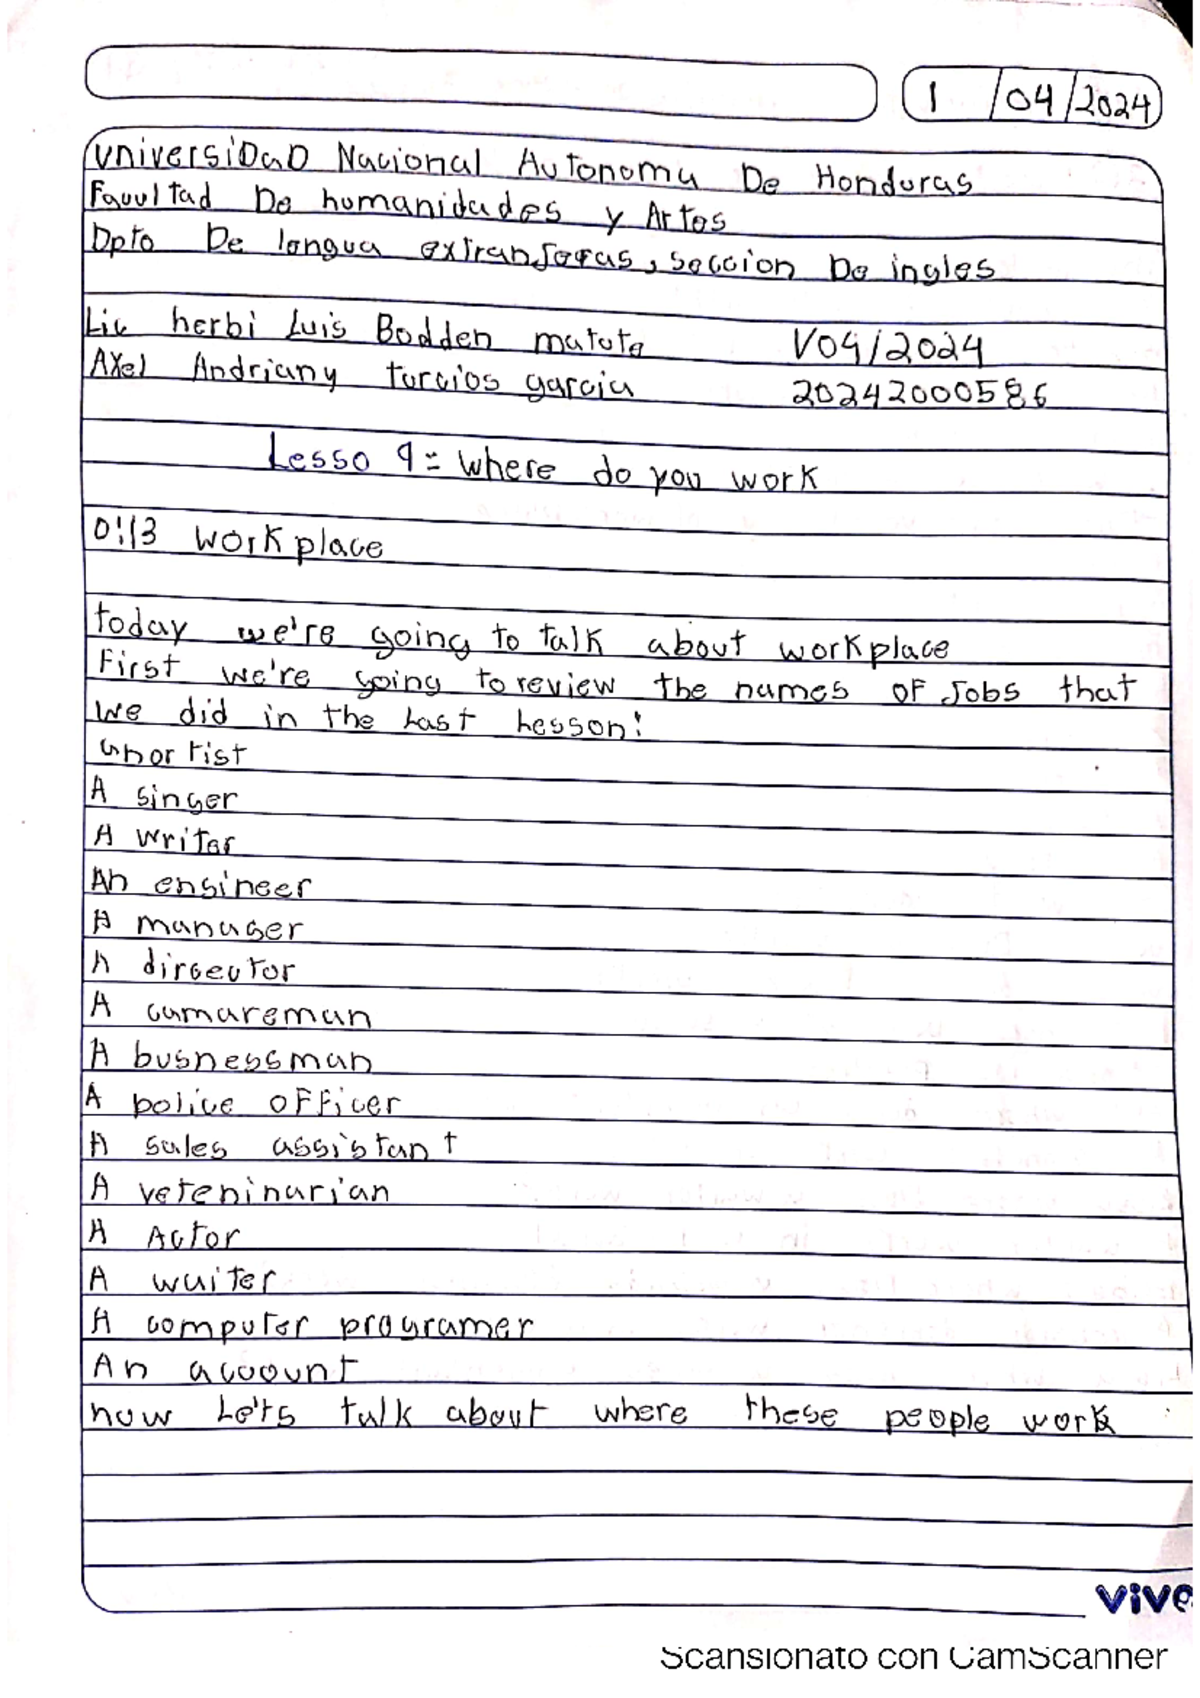 1 /04/2024
UniversiDaD Nacional Autonoma De Honduras
Facultad De humanidades y Artes
Dpto De lengua extranjeras, seccion De ingles
Lic herbi Luis Bodden matute V04/2024
Axel Andriany turcios garcia 20242000586
Lesso 9= where do you work
0:13 workplace
today we're going to talk about workplace
First we're going to review the names of Jobs that
we did in the Last Lesson:
an or tist
A singer
A writer
An engineer
A manager
A director
A camareman
A busnessman
A police officer
A sales assistant
A veteninarian
A Actor
A waiter
A computer programer
An account
now Let's talk about where these people work
vive
Scansionato con CamScanner